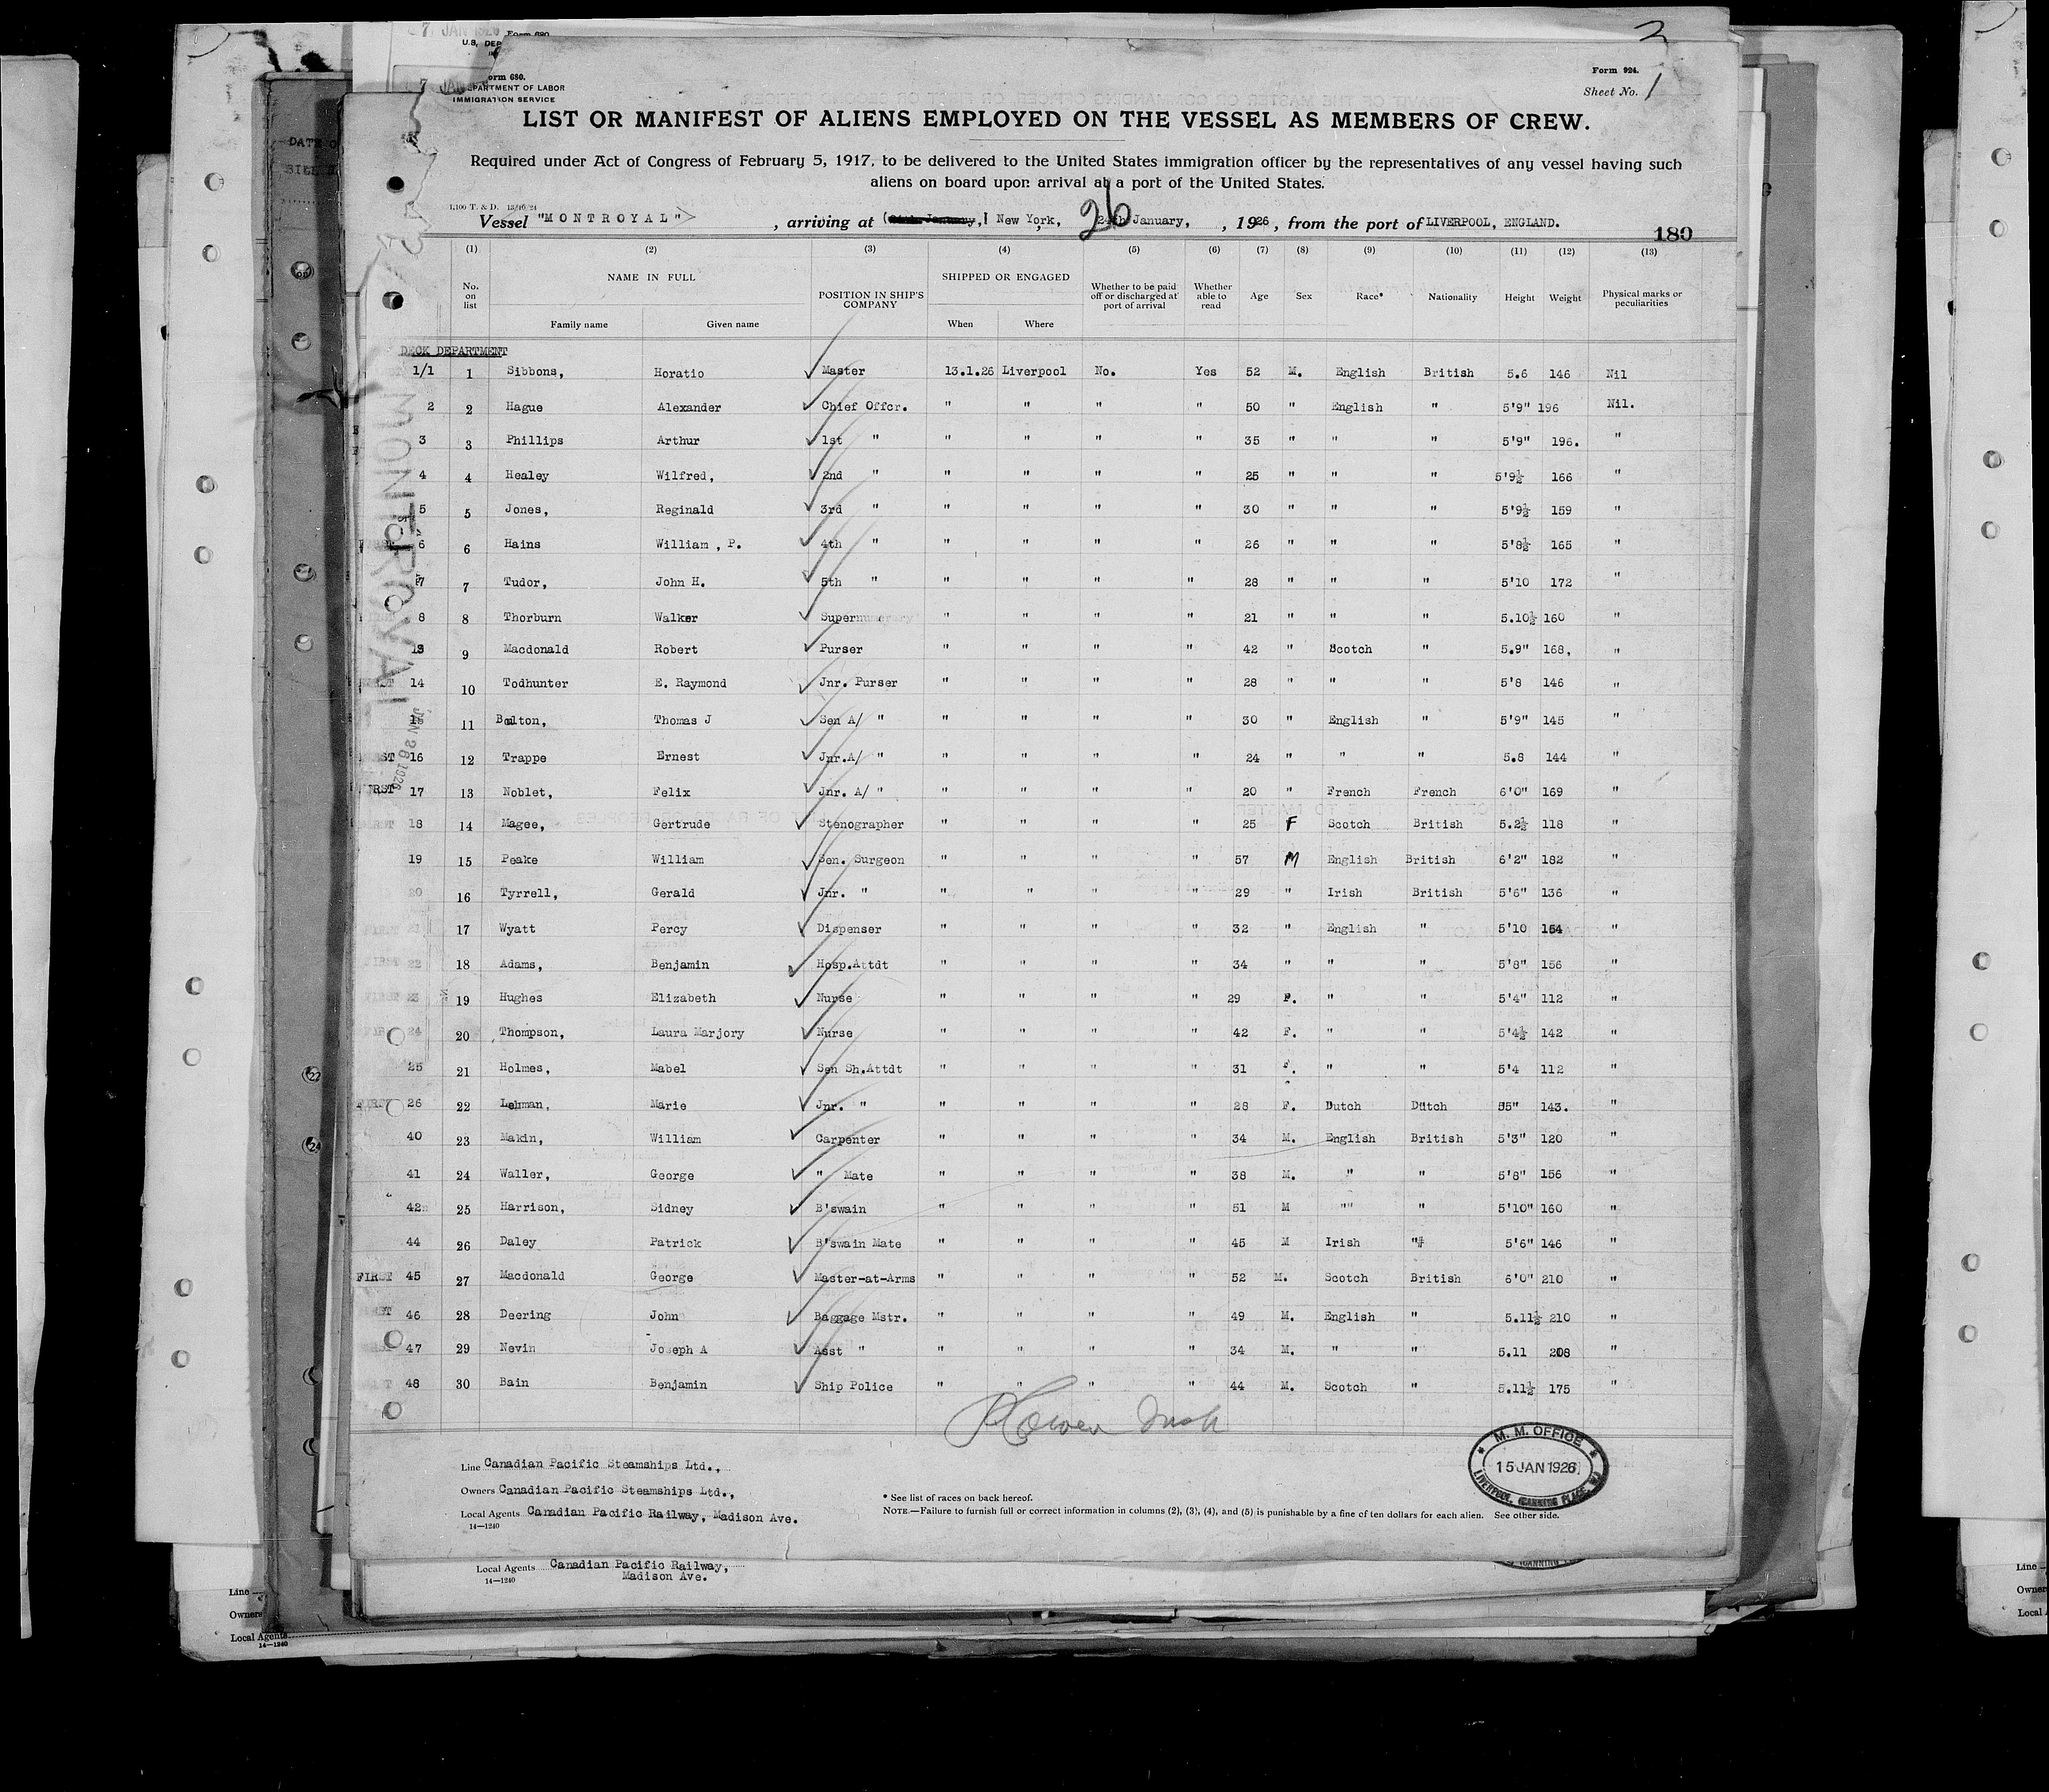 7 JAN 1926 Form 680
U.S. DEP
Form 680.
7 JAN DEPARTMENT OF LABOR
IMMIGRATION SERVICE
Form 924.
Sheet No. 1
LIST OR MANIFEST OF ALIENS EMPLOYED ON THE VESSEL AS MEMBERS OF CREW.
Required under Act of Congress of February 5, 1917, to be delivered to the United States immigration officer by the representatives of any vessel having such
aliens on board upon arrival at a port of the United States.
1,100 T. & D. 13/10/24
Vessel "MONTROYAL" , arriving at New York, 26 24th January, , 1926 , from the port of LIVERPOOL, ENGLAND.
180
(1) (2) (3) (4) (5) (6) (7) (8) (9) (10) (11) (12) (13)
No. on list NAME IN FULL Family name Given name POSITION IN SHIP'S COMPANY SHIPPED OR ENGAGED When Where Whether to be paid off or discharged at port of arrival Whether able to read Age Sex Race* Nationality Height Weight Physical marks or peculiarities
DECK DEPARTMENT
1/1 1 Sibbons, Horatio Master 13.1.26 Liverpool No. Yes 52 M. English British 5.6 146 Nil
2 2 Hague Alexander Chief Offcr. " " " " 50 " English " 5'9" 196 Nil.
3 3 Phillips Arthur 1st " " " " " 35 " " " 5'9" 196. "
4 4 Healey Wilfred, 2nd " " " " " 25 " " " 5'9½ 166 "
5 5 Jones, Reginald 3rd " " " " " 30 " " " 5'9½ 159 "
6 6 Hains William , P. 4th " " " " " 26 " " " 5'8½ 165 "
7 7 Tudor, John H. 5th " " " " " 28 " " " 5'10 172 "
8 8 Thorburn Walker Supernumerary " " " " 21 " " " 5.10½ 160 "
13 9 Macdonald Robert Purser " " " " 42 " Scotch " 5.9" 168, "
14 10 Todhunter E. Raymond Jnr. Purser " " " " 28 " " " 5'8 146 "
15 11 Bolton, Thomas J Sen A/ " " " " " 30 " English " 5'9" 145 "
16 12 Trappe Ernest Jnr.A/ " " " " " 24 " " " 5.8 144 "
FIRST 17 13 Noblet, Felix Jnr. A/ " " " " " 20 " French French 6'0" 169 "
18 14 Magee, Gertrude Stenographer " " " " 25 F Scotch British 5.2½ 118 "
19 15 Peake William Sen. Surgeon " " " " 57 M English British 6'2" 182 "
20 16 Tyrrell, Gerald Jnr. " " " " " 29 " Irish British 5'6" 136 "
FIRST 21 17 Wyatt Percy Dispenser " " " " 32 " English " 5'10 154 "
FIRST 22 18 Adams, Benjamin Hosp.Attdt " " " " 34 " " " 5'8" 156 "
FIRST 23 19 Hughes Elizabeth Nurse " " " " 29 F. " " 5'4" 112 "
24 20 Thompson, Laura Marjory Nurse " " " " 42 F. " " 5'4½ 142 "
25 21 Holmes, Mabel Sen Sh.Attdt " " " " 31 F. " " 5'4 112 "
FIRST 26 22 Lehman, Marie Jnr. " " " " " 28 F. Dutch Dutch 55" 143. "
40 23 Makin, William Carpenter " " " " 34 M. English British 5'3" 120 "
41 24 Waller, George " Mate " " " " 38 M. " " 5'8" 156 "
42 25 Harrison, Sidney B'swain " " " " 51 M "" " 5'10" 160 "
44 26 Daley Patrick B'swain Mate " " " " 45 M Irish " 5'6" 146 "
FIRST 45 27 Macdonald George Master-at-Arms " " " " 52 M. Scotch British 6'0" 210 "
46 28 Deering John Baggage Mstr. " " " " 49 M. English " 5.11½ 210 "
47 29 Nevin Joseph A Asst " " " " " 34 M. " " 5.11 208 "
48 30 Bain Benjamin Ship Police " " " " 44 M. Scotch " 5.11½ 175 "
MONTROYAL
JAN 26 1926
M. M. OFFICE
15 JAN 1926
LIVERPOOL, (CANNING PLACE,
Line Canadian Pacific Steamships Ltd.,
Owners Canadian Pacific Steamships Ltd.,
Local Agents Canadian Pacific Railway, Madison Ave.
14—1240
* See list of races on back hereof.
NOTE.—Failure to furnish full or correct information in columns (2), (3), (4), and (5) is punishable by a fine of ten dollars for each alien. See other side.
Local Agents Canadian Pacific Railway,
14—1240 Madison Ave.
Line
Owners
Local Agents
14—1240
Line
Owner
Local